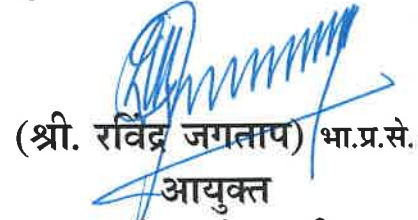 (श्री. रविंद्र जगताप) भा.प्र.से.
आयुक्त